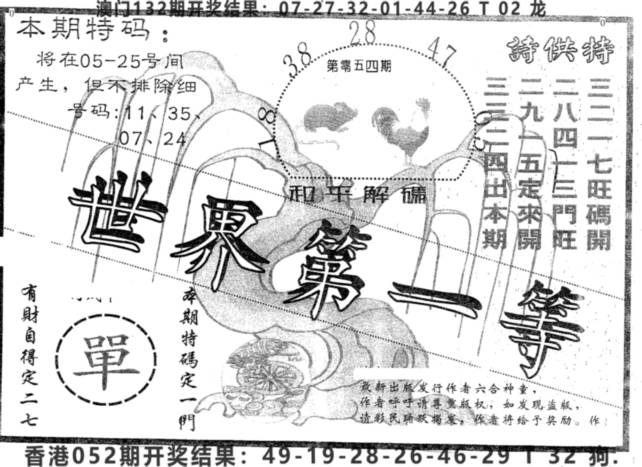 澳门132期开奖结果：07-27-32-01-44-26 T 02 龙
本期特码：
将在05-25号间
产生，但不排除细
号码：11、35、
07、24
38
28
47
第零五四期
18
和平解碼
特供詩
三二一七旺碼開
二八四一三門旺
二九一五定來開
三三二四出本期
世界第一等
有財自得定二七
單
本期特碼定一門
最新出版发行作者六合神童，
作者呼呼请尊重版权，如发现盗版，
请彩民踊跃揭案，作者将给予奖励。作
香港052期开奖结果：49-19-28-26-46-29 T 32 狗.